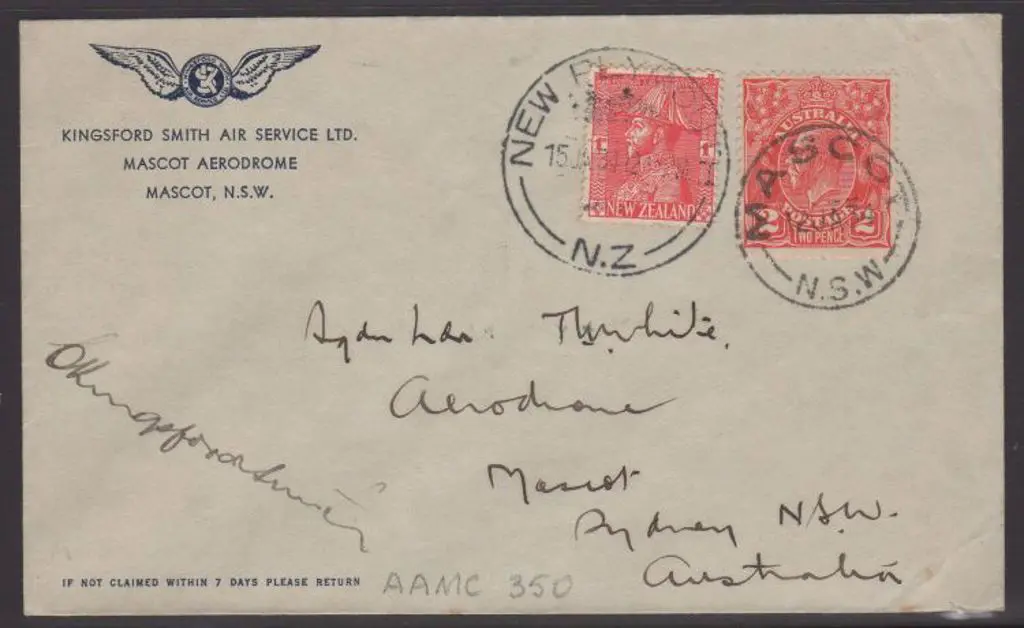 KINGSFORD SMITH AIR SERVICE LTD.
MASCOT AERODROME
MASCOT, N.S.W.
NEW PLYMO
15 JA
N.Z
NEW ZEALAND
AUSTRALIA
2 2
TWO PENCE
MASCOT
N.S.W
T.W. White,
Aerodrome
Mascot
Sydney NSW.
Australia
CKingsfordSmith
IF NOT CLAIMED WITHIN 7 DAYS PLEASE RETURN
AAMC 350